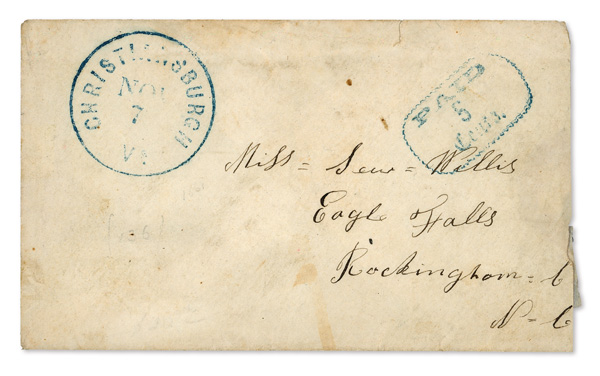 CHRISTIANSBURGH
NOV
7
VA
PAID
5
Cents.
Miss = = Willis
Eagle Falls
Rockingham = C
N = C